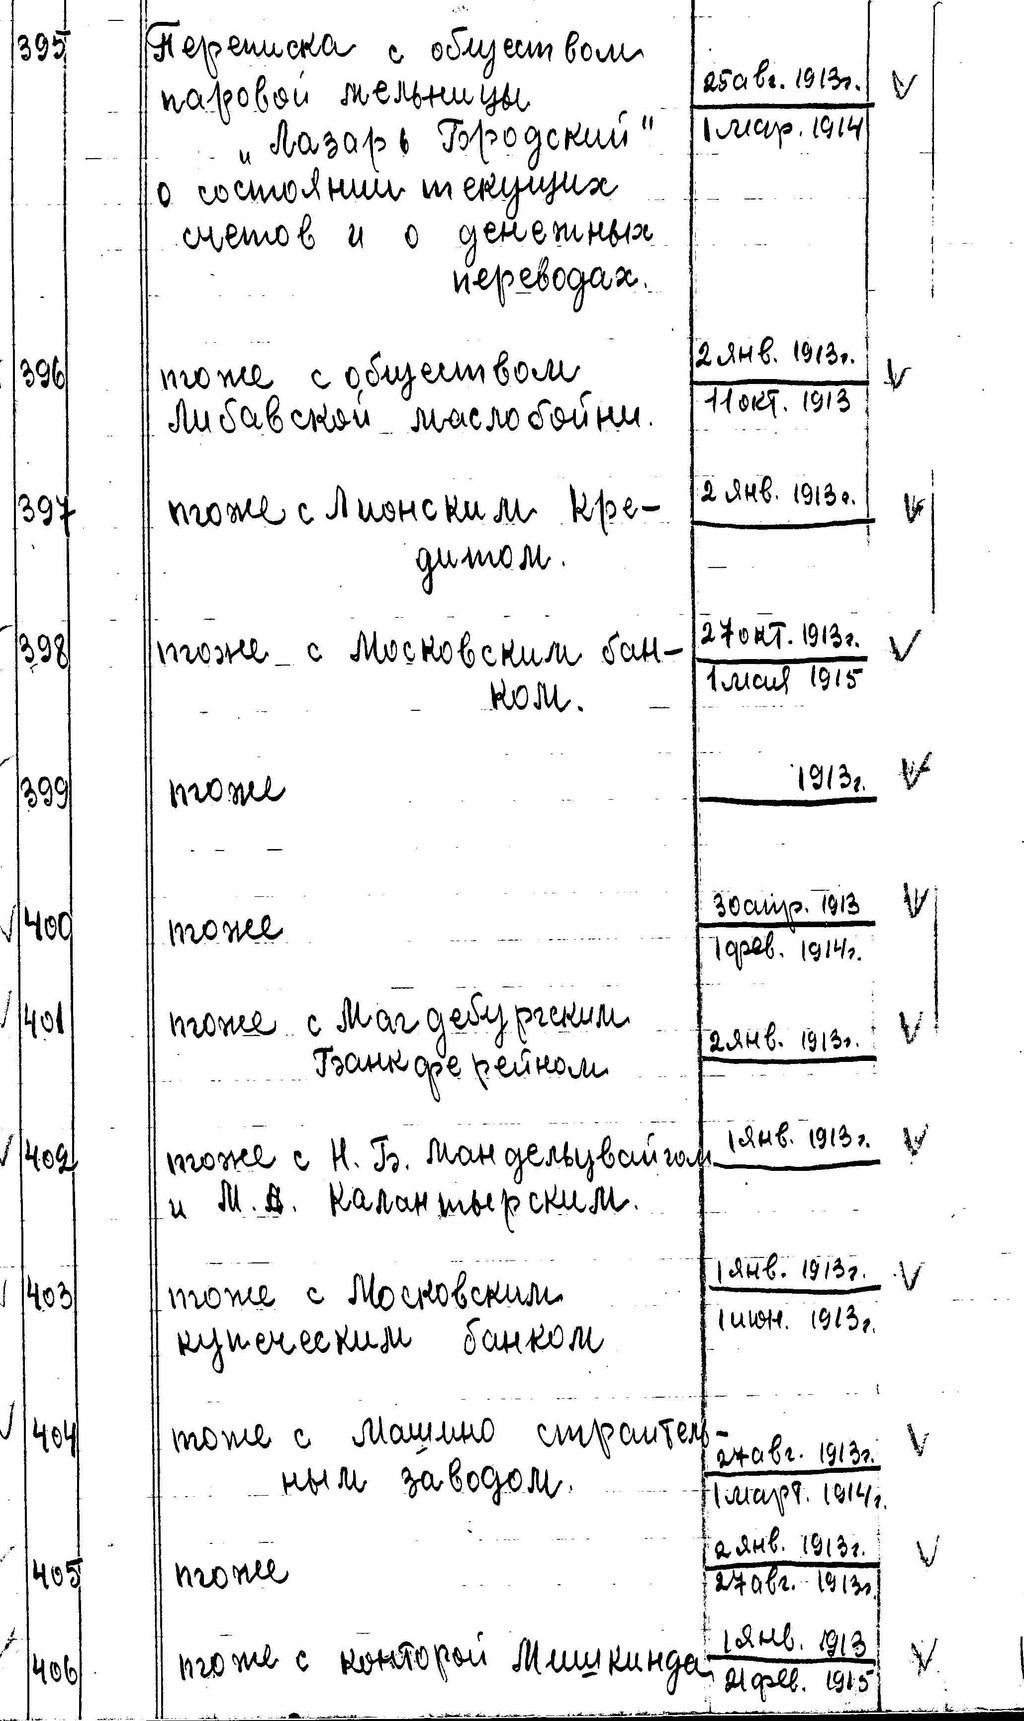 395 Переписка с обществом
паровой мельницы
„Лазарь Бродский"
о состоянии текущих
счетов и о денежных
переводах.
25 авг. 1913г.
1 мар. 1914
396 тоже с обществом
Либавской маслобойни.
2 янв. 1913г.
11 окт. 1913
397 тоже с Лионским Кре-
дитом.
2 янв. 1913г.
398 тоже с Московским бан-
ком.
27 окт. 1913г.
1 мая 1915
399 тоже
1913г.
400 тоже
30 апр. 1913
1 фев. 1914г.
401 тоже с Магдебургским
Банкферейном
2 янв. 1913г.
402 тоже с Н. Б. Мандельцвайгом
и М.А. Калантырским.
1 янв. 1913г.
403 тоже с Московским
купеческим банком
1 янв. 1913г.
1 июн. 1913г.
404 тоже с Машино строитель-
ным заводом.
27 авг. 1913г.
1 март. 1914г.
405 тоже
2 янв. 1913г.
27 авг. 1913г
406 тоже с конторой Мишкинда
1 янв. 1913
21 фев. 1915